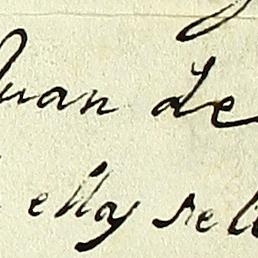 Juan de
ellas se le